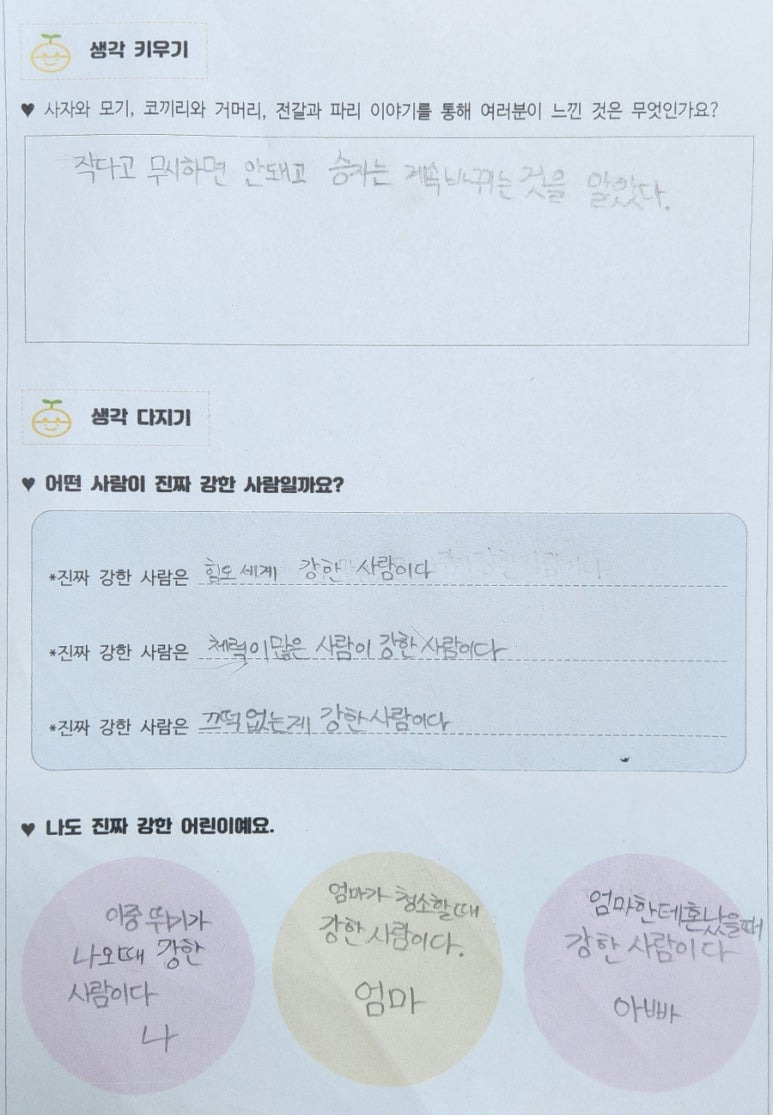 생각 키우기
♥ 사자와 모기, 코끼리와 거머리, 전갈과 파리 이야기를 통해 여러분이 느낀 것은 무엇인가요?
작다고 무시하면 안돼고 승자는 계속바뀌는 것을 알았다.
생각 다지기
♥ 어떤 사람이 진짜 강한 사람일까요?
*진짜 강한 사람은 힘도세계 강한 사람이다
*진짜 강한 사람은 체력이많은 사람이 강한사람이다
*진짜 강한 사람은 끄떡없는게 강한사람이다
♥ 나도 진짜 강한 어린이예요.
이중 뛰기가
나오때 강한
사람이다
나
엄마가 청소할때
강한사람이다.
엄마
엄마한테혼났을때
강한사람이다
아빠